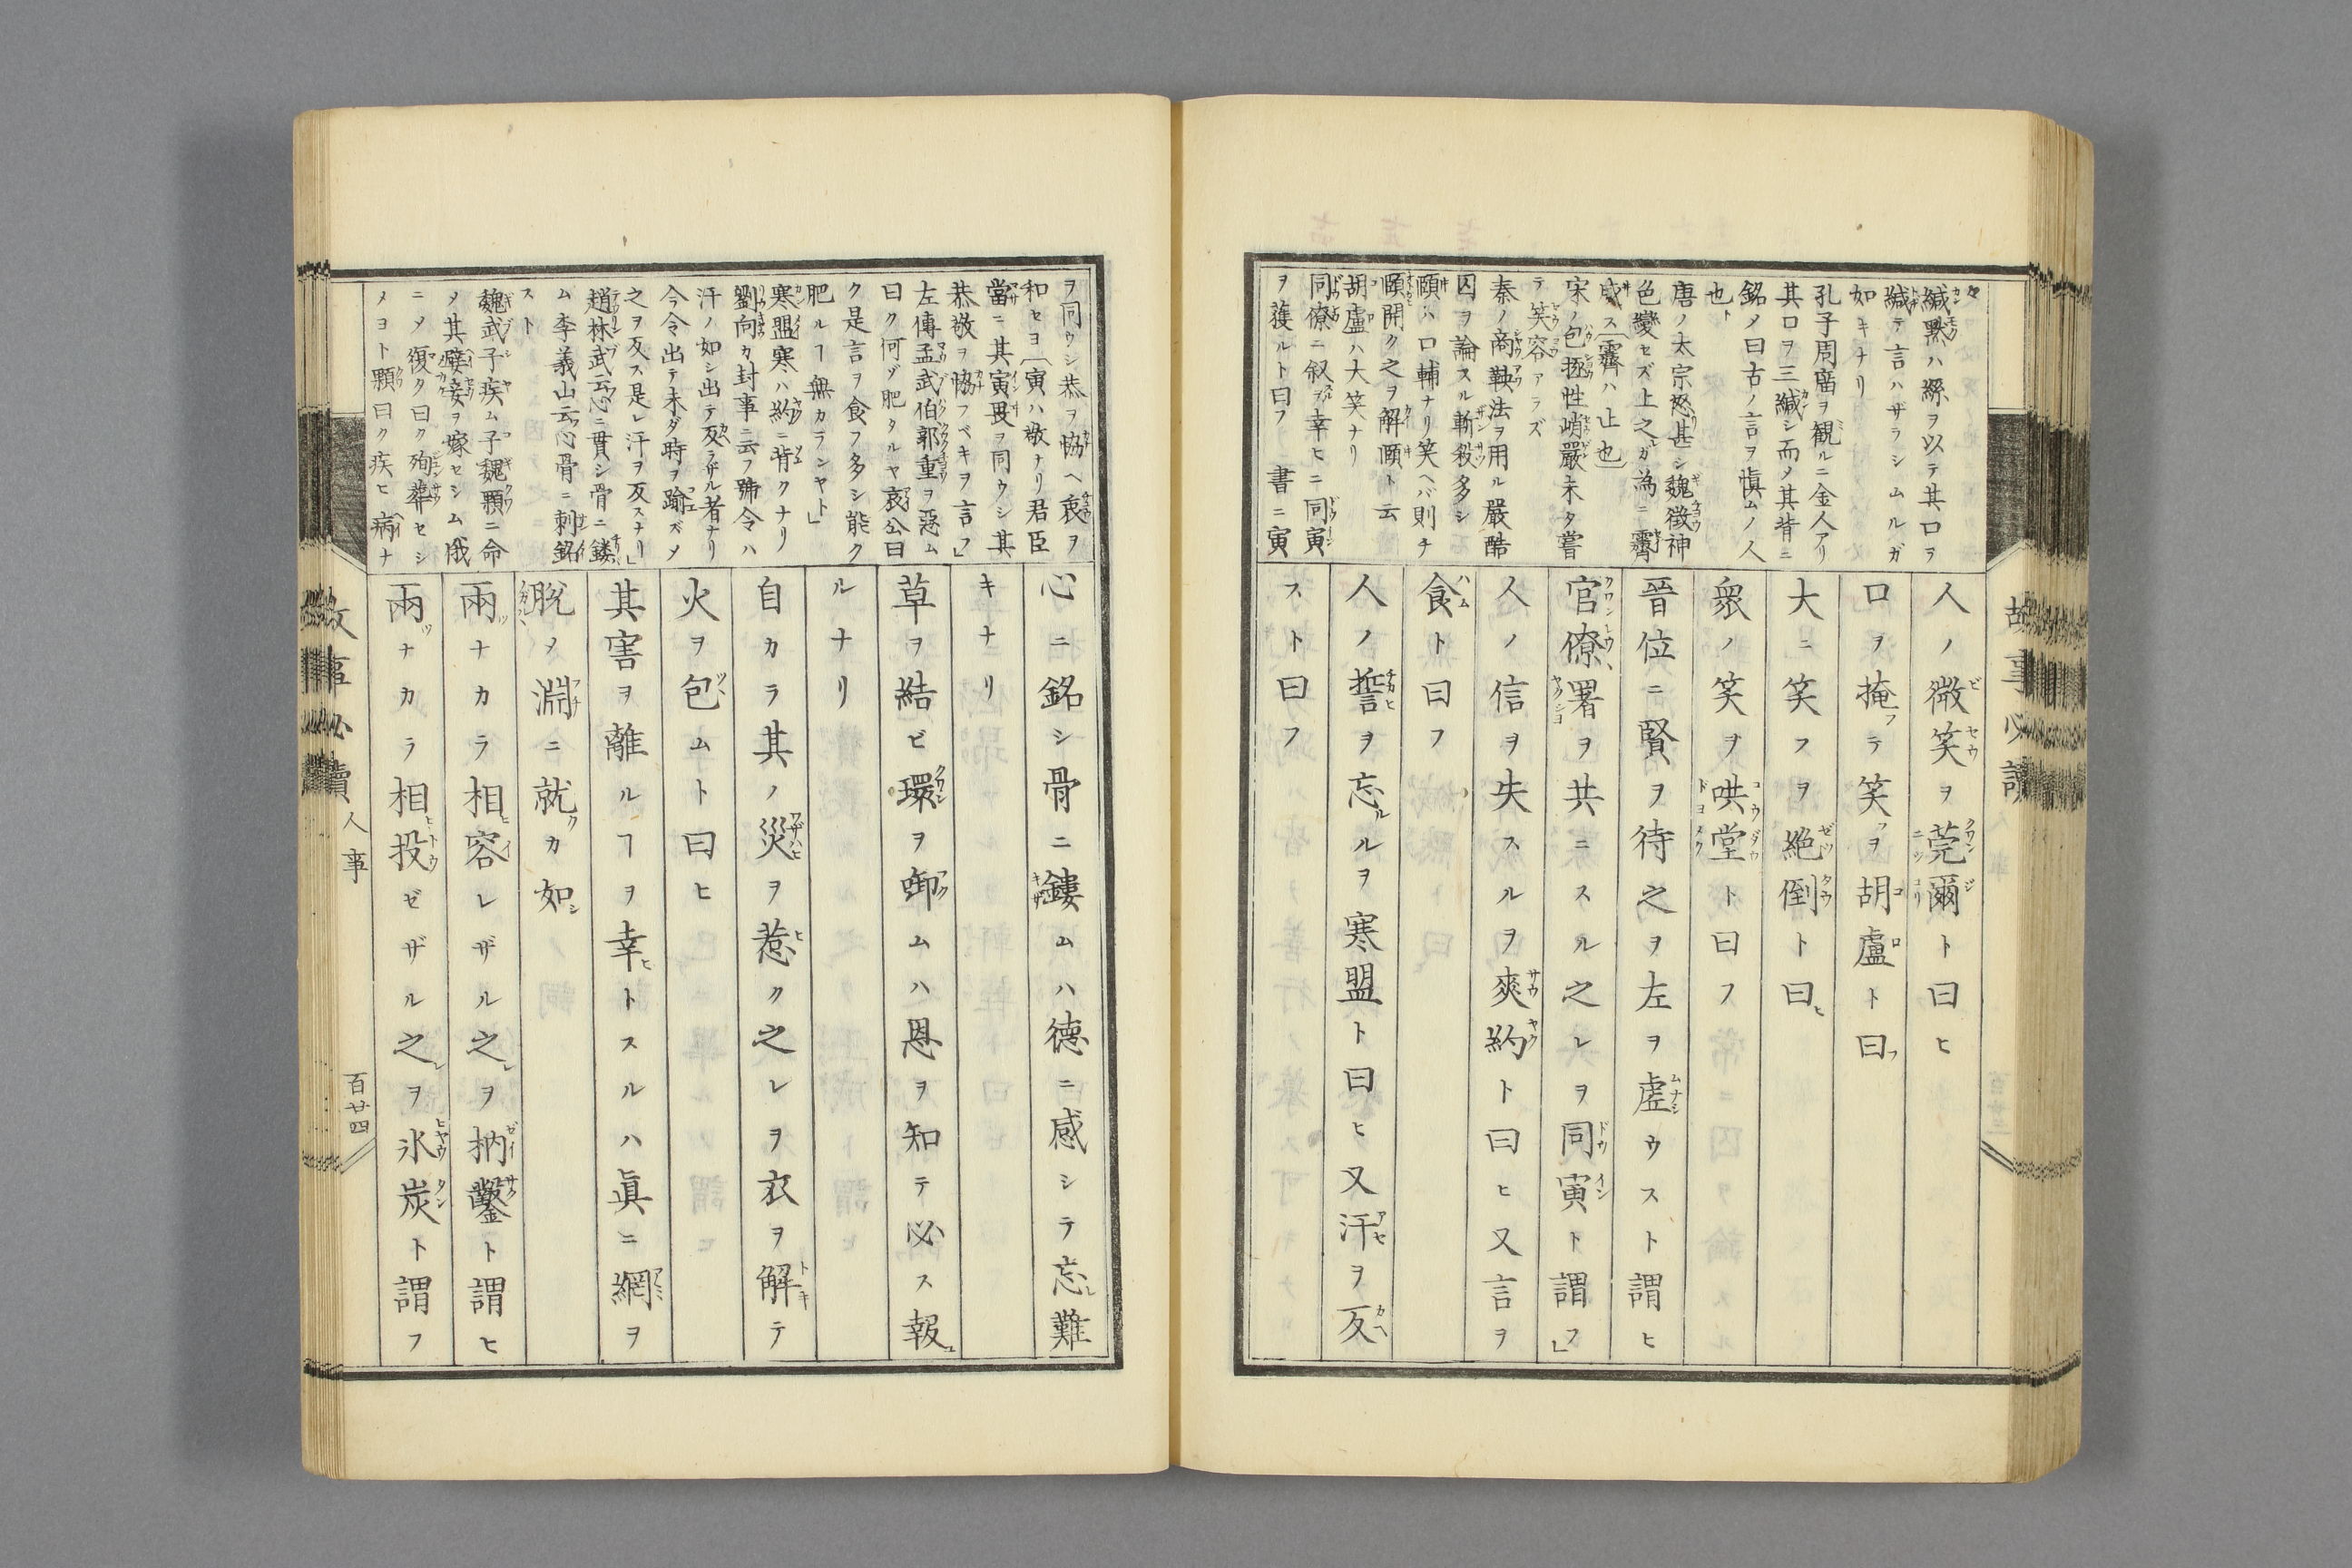 故事必讀
緘黙ハ縲ヲ以テ其口ヲ
緘テ言ハザラシムルガ
如キナリ
孔子周庿ヲ観ルニ金人アリ
其口ヲ三緘シ而メ其背ニ
銘メ曰古ノ言ヲ慎ムノ人
也ト
唐ノ太宗怒甚シ魏徴神
色變セズ上之ガ為ニ霽
威ス〔霽ハ止也〕
宋ノ包拯性峭嚴未タ嘗
テ笑容アラズ
秦ノ商鞅法ヲ用ル嚴酷
囚ヲ論スル斬殺多シ
頤ハ口輔ナリ笑ヘバ則チ
頤開ク之ヲ解頤ト云
胡盧ハ大笑ナリ
同僚ニ叙ヲ幸ヒニ同寅
ヲ獲ルト曰フ 書ニ寅
人ノ微笑ヲ莞爾ト曰ヒ
口ヲ掩フテ笑フヲ胡盧ト曰フ
大ニ笑フヲ絶倒ト曰ヒ
衆ノ笑ヲ哄堂ト曰フ
晉位ニ賢ヲ待之ヲ左ヲ虚ウスト謂ヒ
官僚署ヲ共ニスル之レヲ同寅ト謂フ」
人ノ信ヲ失スルヲ爽約ト曰ヒ又言ヲ
食ト曰フ
人ノ誓ヲ忘ルルヲ寒盟ト曰ヒ又汗ヲ反
スト曰フ
ヲ同ウシ恭ヲ協ヘ衷ヲ
和セヨ〔寅ハ敬ナリ君臣
當ニ其寅畏ヲ同ウシ其
恭敬ヲ協フベキヲ言フ」
左傳孟武伯郭重ヲ惡ム
曰ク何ゾ肥タルヤ哀公曰
ク是言ヲ食フ多シ能ク
肥ルヿ無カランヤト」
寒盟寒ハ約ニ背クナリ
劉向カ封事ニ云フ號令ハ
汗ノ如シ出テ反ラザル者ナリ
今令出テ未ダ時ヲ踰ズメ
之ヲ反ス是レ汗ヲ反スナリ」
趙林武云心ニ貫シ骨ニ鏤
ム李義山云心骨ニ刺銘
スト
魏武子疾ム子魏顆ニ命
メ其嬖妾ヲ嫁セシム俄
ニメ復タ曰ク殉葬セシ
メヨト顆曰ク疾ヒ病ナ
心ニ銘シ骨ニ鏤ムハ德ニ感シテ忘レ難
キナリ
草ヲ結ビ環ヲ啣ムハ恩ヲ知テ必ス報ユ
ルナリ
自カラ其ノ災ヲ惹ク之レヲ衣ヲ解テ
火ヲ包ムト曰ヒ
其害ヲ離ルヿヲ幸ヒトスルハ眞ニ網ヲ
脱メ淵ニ就クカ如シ
兩ツナカラ相容レザル之レヲ枘鑿ト謂ヒ
兩ツナカラ相投ゼザル之レヲ氷炭ト謂フ
故事必讀 人事 百廿四